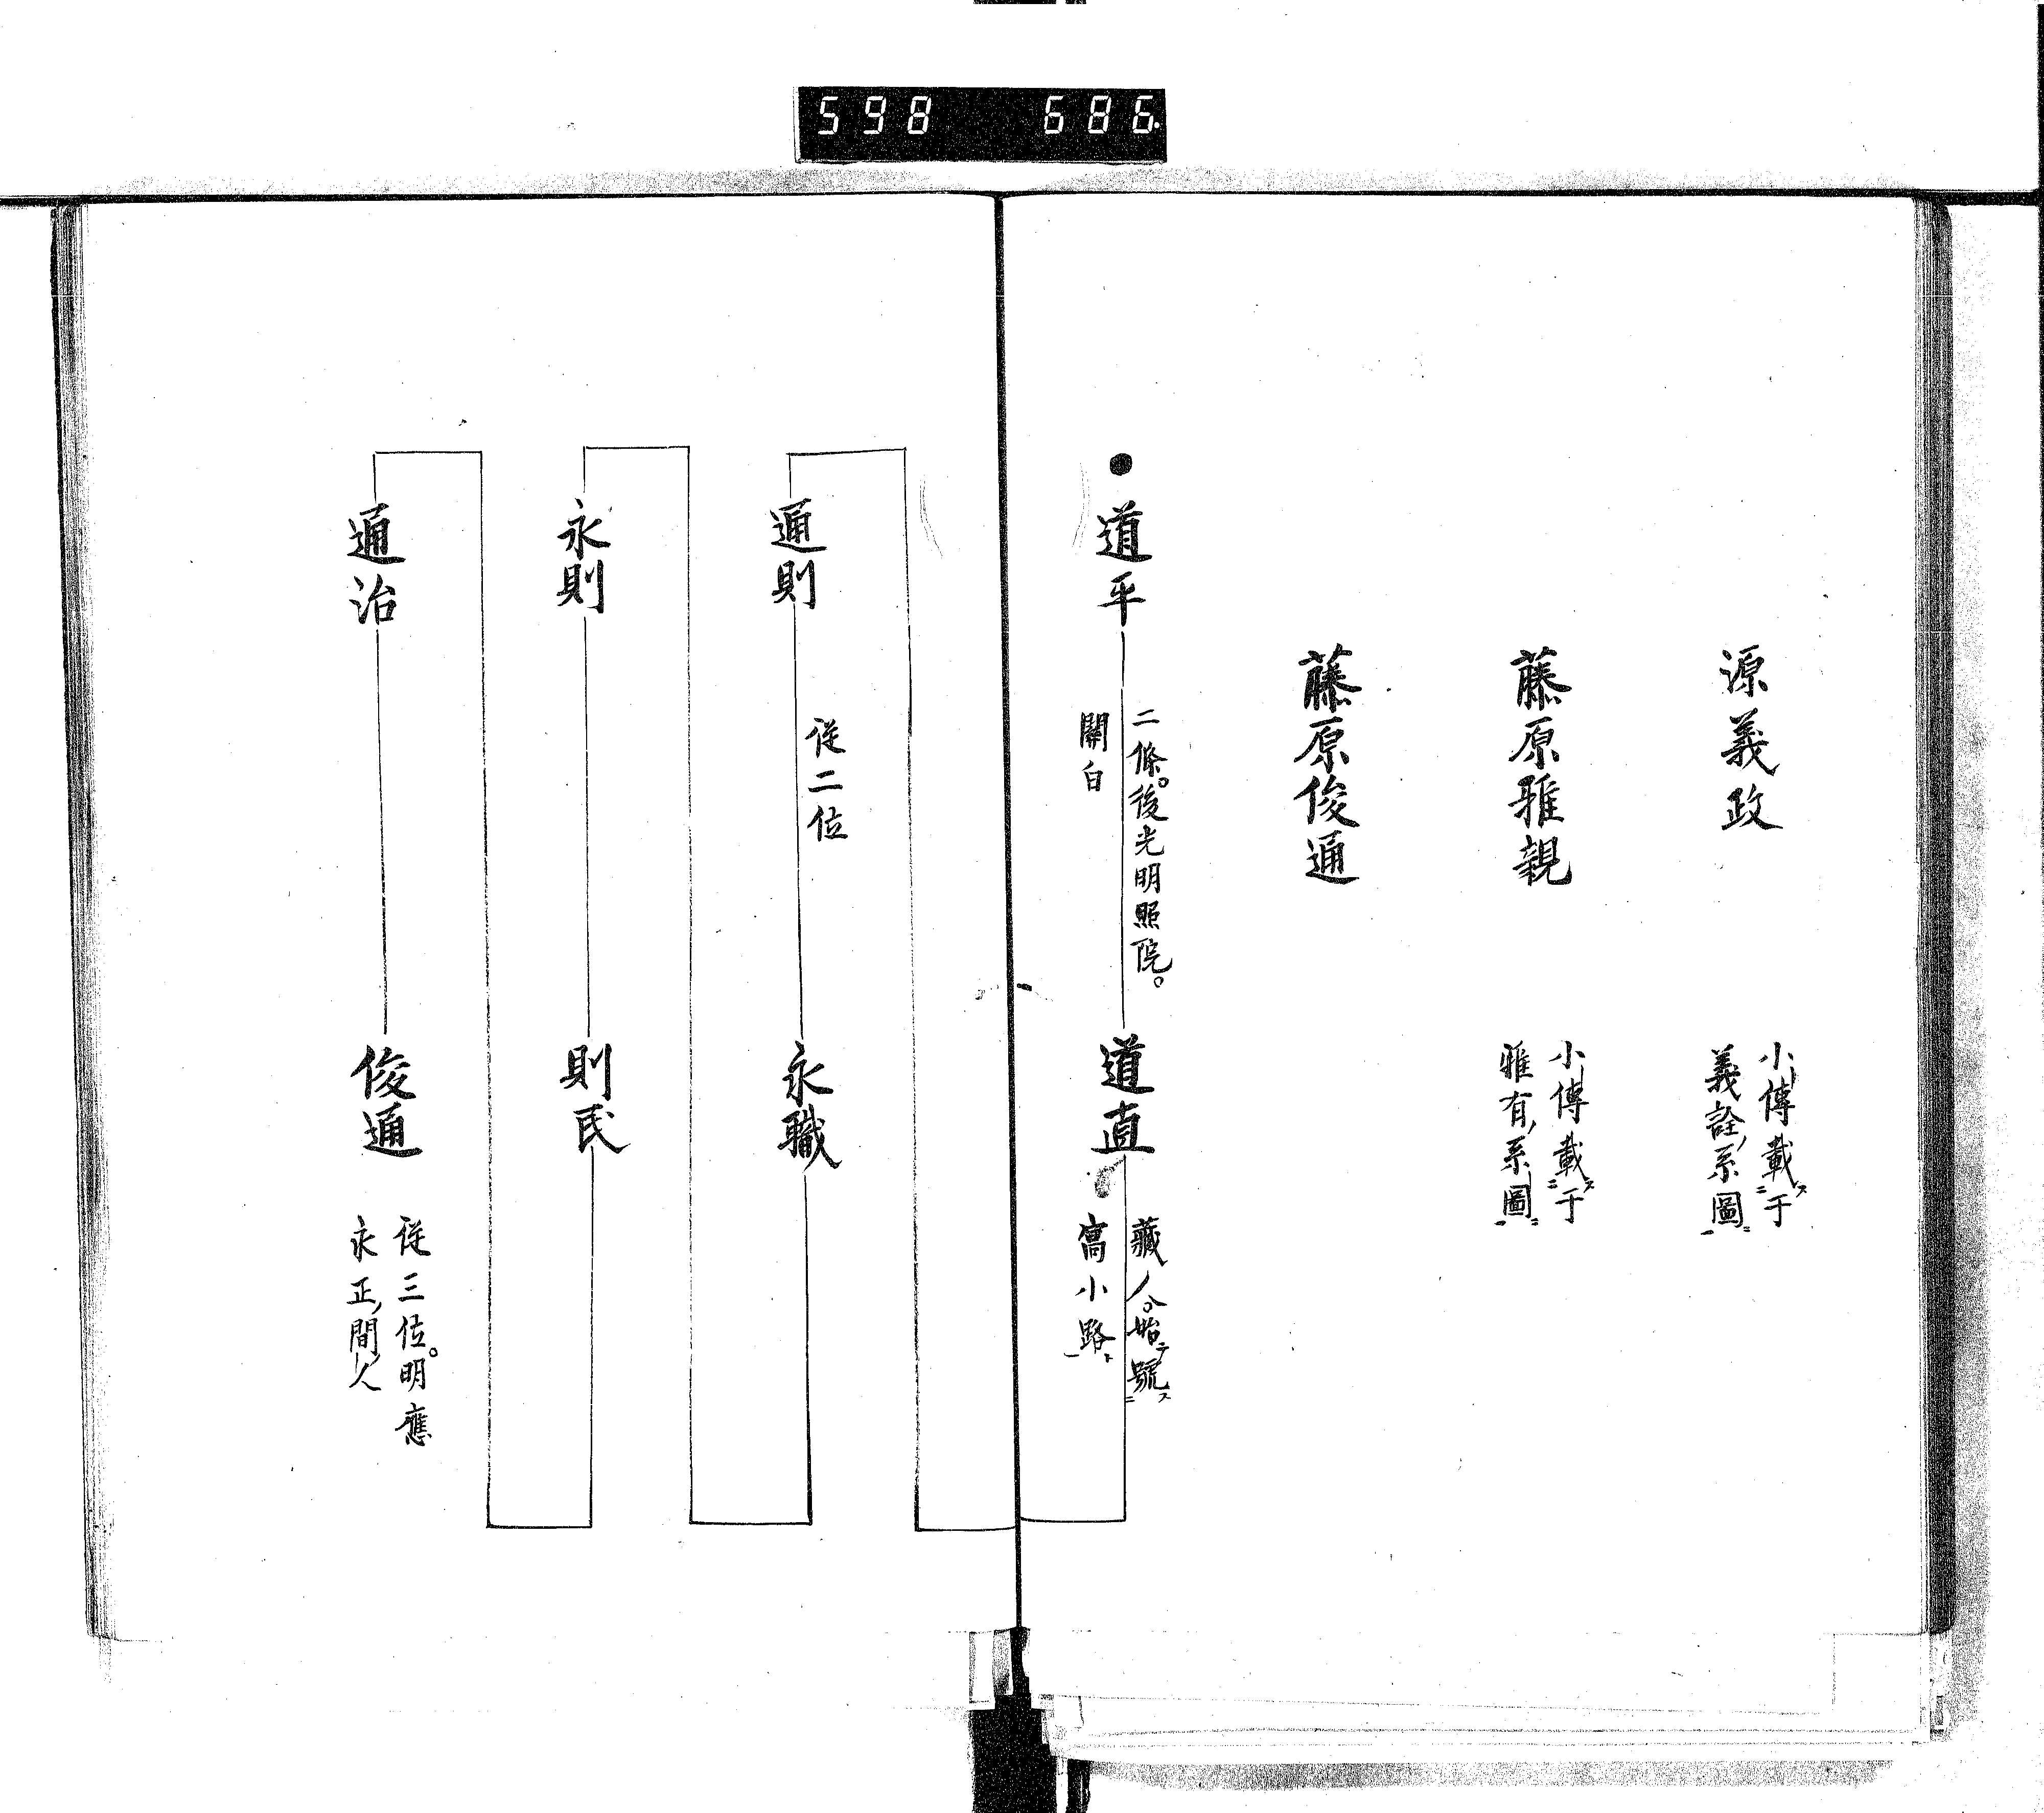 598 686
源義政
小傳載于
義詮系圖
藤原雅親
小傳載于
雅有系圖
藤原俊通
●道平
二條。後光明照院。
關白
道直
藏人。始號
富小路
通則
從二位
永職
永則
則民
通治
俊通
從三位。明應
永正間人